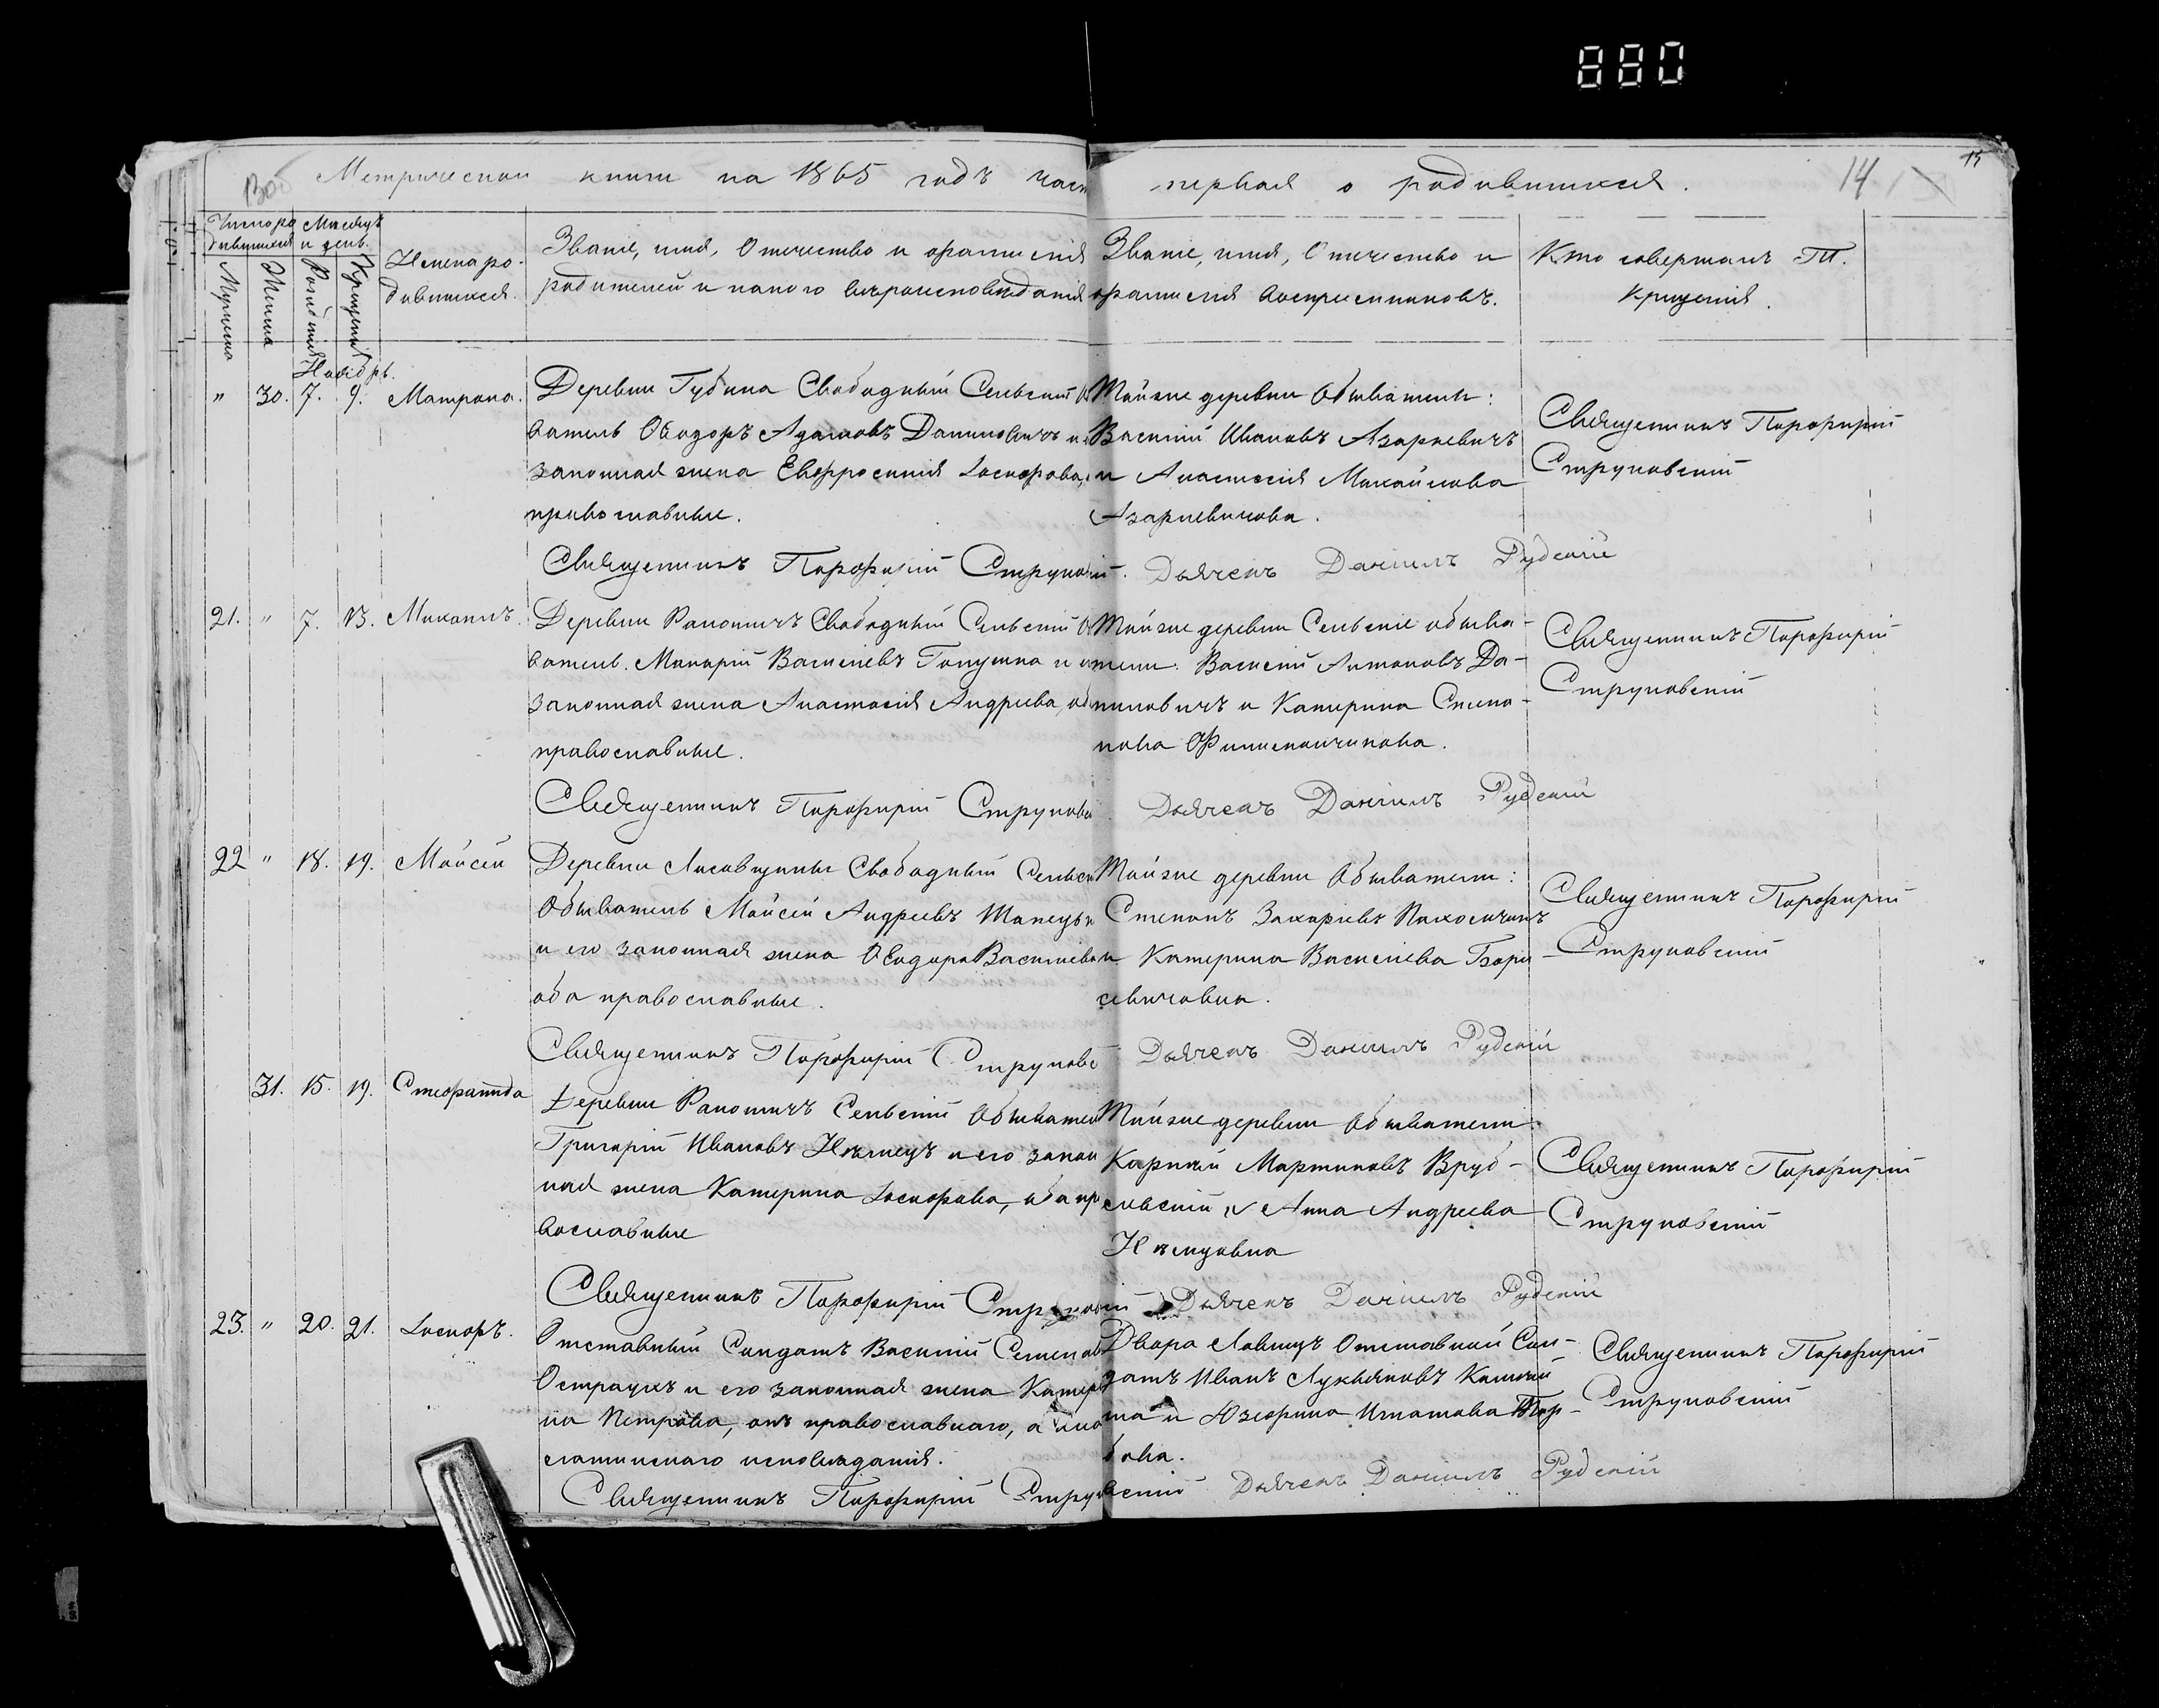 880
Метрической книги на 1865 годъ част
первая о родившихся.
14
15
Число ро
дившихся
Мѣсяцъ
и день.
Мужеска
Женска
Рожденія
Крещенія
Имена ро-
дившихся.
Званіе, имя, Отчество и фамилія
родителей и какого вѣроисповѣданія
Званіе, имя, Отчество и
фамилія воспріемниковъ.
Кто совершалъ Т.
Крещенія.
Ноябрь.
" 30. 7. 9. Матрона.
Деревни Губина Свободный Сельскій О
ватель Ѳеодоръ Адамовъ Даниловичъ и
законная жена Евфросинія Іосифова,
православные.
Тойже деревни Обыватели:
Василій Ивановъ Азаркевичъ
и Анастасія Михайлова
Азаркевичова.
Священникъ Порфирій
Струковскій
Священникъ Порфирій Струковскій. Дьячекъ Даніилъ Рудскій
21. " 7. 13. Михаилъ.
Деревни Рапотичъ Свободный Сельскій О
ватель. Макарій Васильевъ Галушка и
законная жена Анастасія Андреева, об
православные.
Тойже деревни Сельскіе обыва-
тели: Василій Антоновъ Да-
ниловичъ и Катерина Степа-
нова Филипончикова.
Священникъ Порфирій
Струковскій
Священникъ Порфирій Струковс Дьячекъ Даніилъ Рудскій
22 " 18. 19. Мойсей
Деревни Лисовщины Свободный Сельск
Обыватель Мойсей Андреевъ
и его законная жена Ѳеодора Васильева
оба православные.
Тойже деревни Обыватели:
Степанъ Захаріевъ
и Катерина Васильева Бори-
севичовна.
Священникъ Порфирій
Струковскій
Священникъ Порфирій Струковс Дьячекъ Даніилъ Рудскій
31. 15. 19. Стефанида
Деревни Рапотичъ Сельскій Обывател
Григорій Ивановъ Нѣмецъ и его закон
ная жена Катерина Іосифова, оба пр
вославные
Тойже деревни Обыватели:
Мартиновъ Вруб-
левскій и Анна Андреева
Нѣмцовна
Священникъ Порфирій
Струковскій
Священникъ Порфирій Струковскій Дьячекъ Даніилъ Рудскій
23. " 20. 21. Іосифъ.
Отставный Солдатъ Василій Семенов
Остраухъ и его законная жена Катери
на Петрова, онъ православнаго, а она
латинскаго исповѣданія.
Двора Ловищъ Отставной Сол-
датъ Иванъ Лукьяновъ
и Юзефина Игнатова
бова.
Священникъ Порфирій
Струковскій
Священникъ Порфирій Струковскій Дьячекъ Даніилъ Рудскій